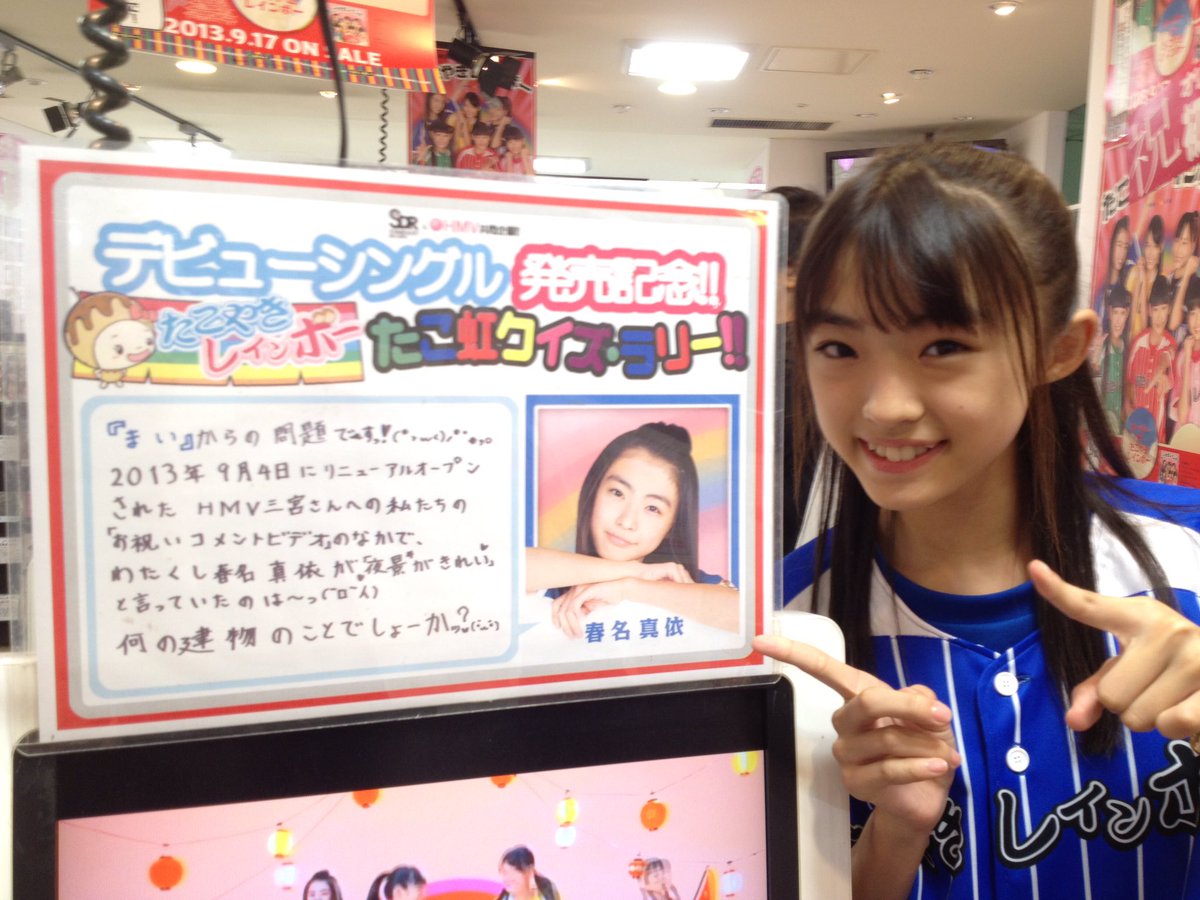 レインボー
2013.9.17 ON SALE
SDR
HMV共同企画!!
デビューシングル 発売記念!!
たこやき
レインボー
たこ虹クイズ・ラリー!!
『まい』からの問題ですっ!
2013年9月4日にリニューアルオープン
された HMV三宮さんへの私たちの
「お祝いコメントビデオ」のなかで、
わたくし春名真依が「夜景がきれい」
と言っていたのは〜っ
何の建物のことでしょーかっ?
春名真依
レインボ